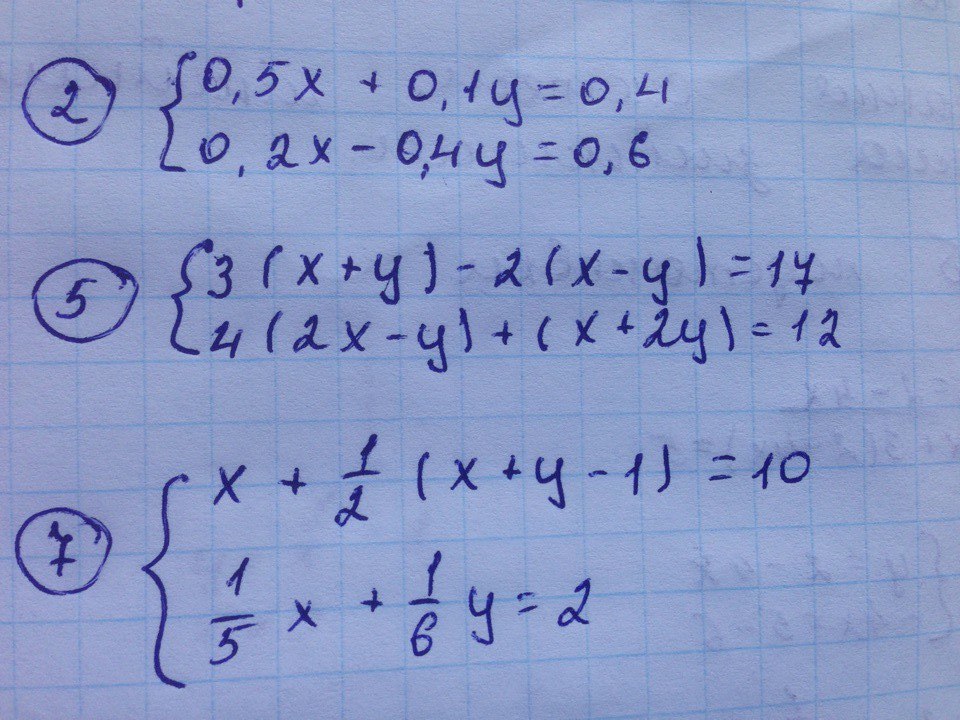 ② { 0,5x + 0,1y = 0,4
0,2x - 0,4y = 0,6
⑤ { 3(x+y) - 2(x-y) = 17
4(2x-y) + (x+2y) = 12
⑦ { x + 1/2 (x+y-1) = 10
1/5 x + 1/6 y = 2